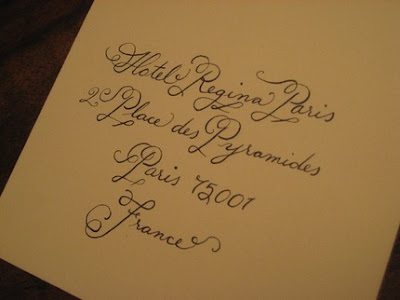 Hotel Regina Paris
2 Place des Pyramides
Paris 75001
France